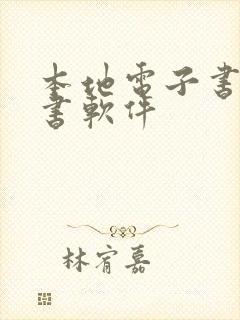 本地電子書
書軟件
林宥嘉